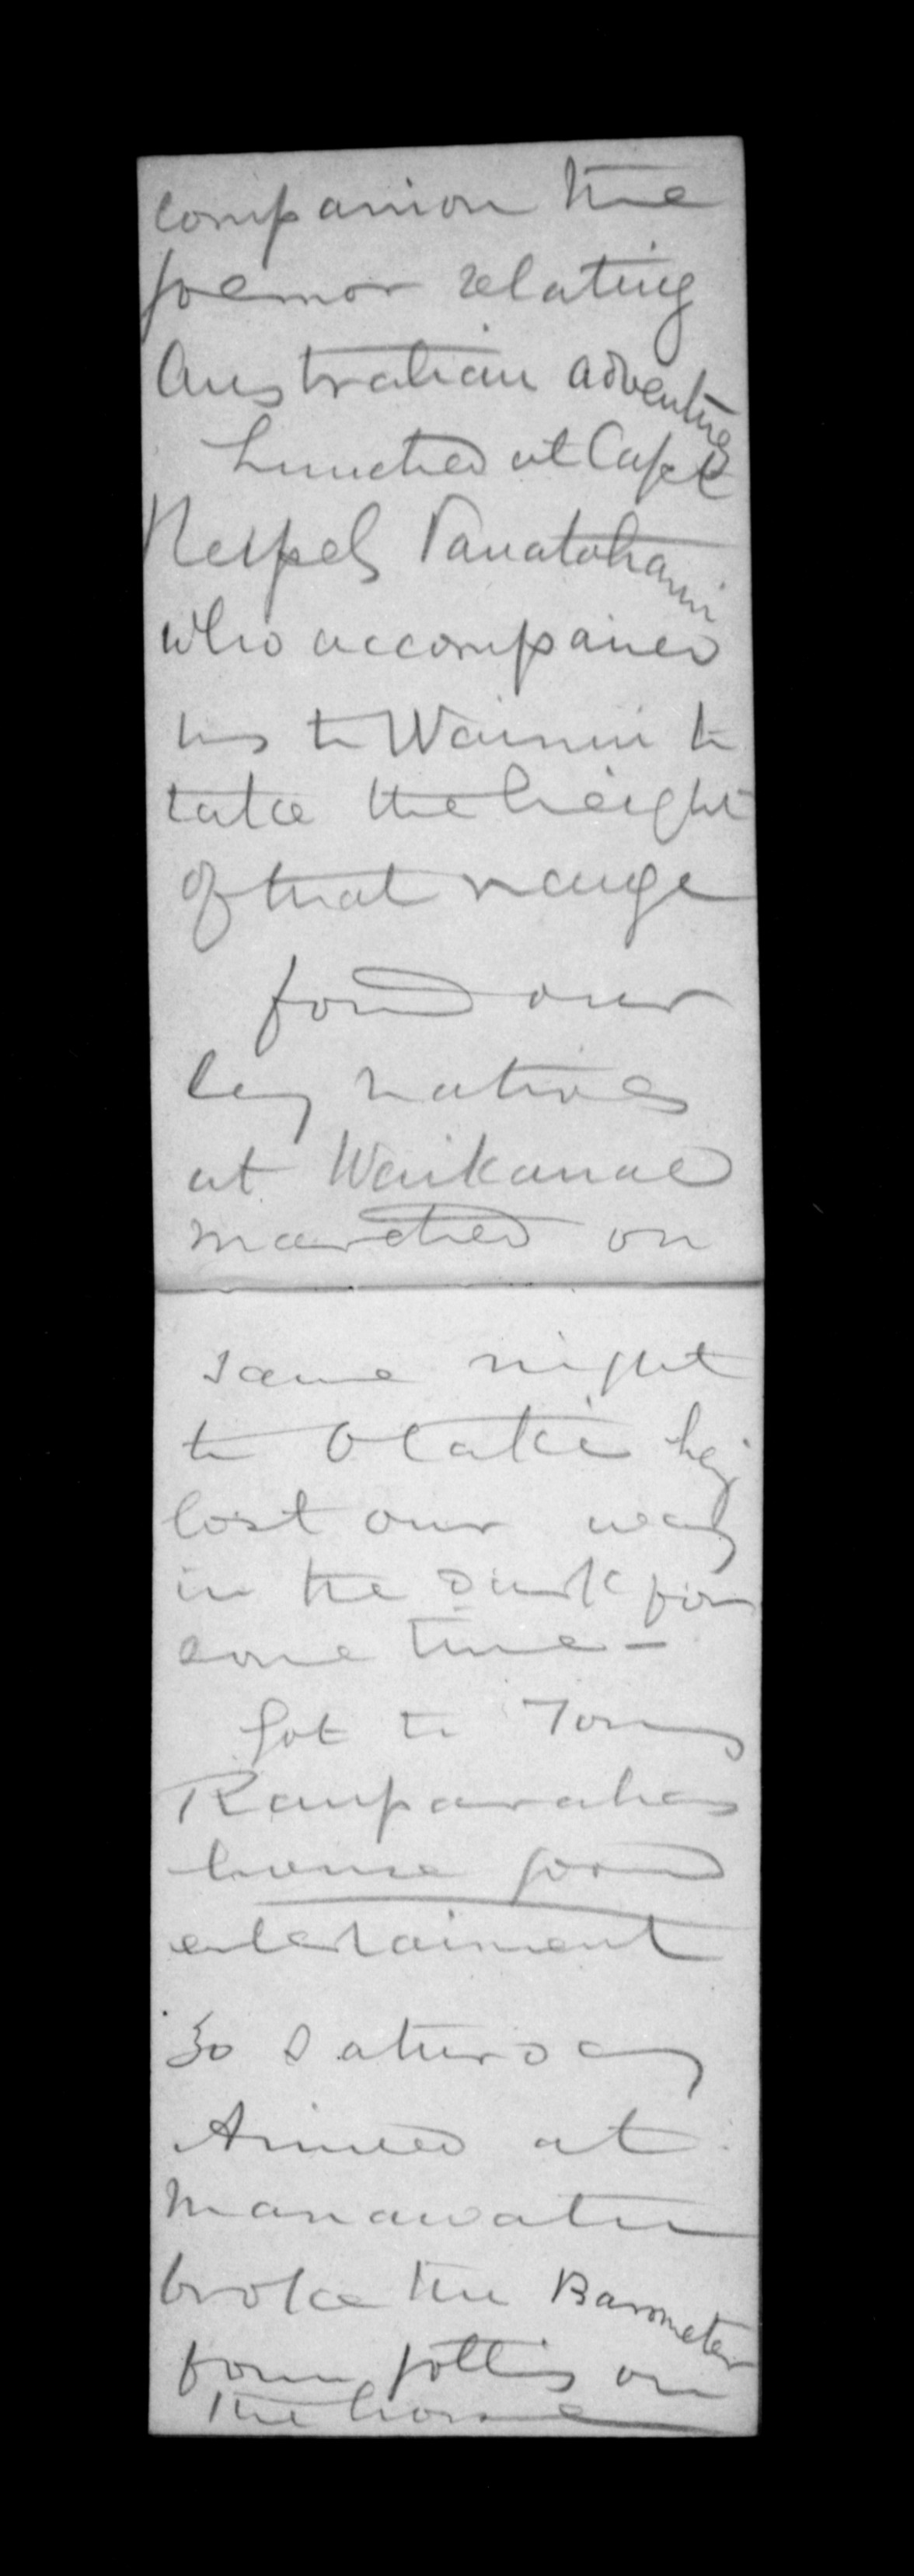 companion the
former relating
Australian adventures
Lunched at Capt
who accompanied
us to Wainui to
take the height
of that range
found our
lazy natives
at Waikanae
marched on
same night
to Otaki havg
lost our way
in the dark for
some time -
Got to Toms
Rauparahas
house good
entertainment
30 Saturday
Arrived at
Manawatu
broke the Barometer
from jolting on
the horse